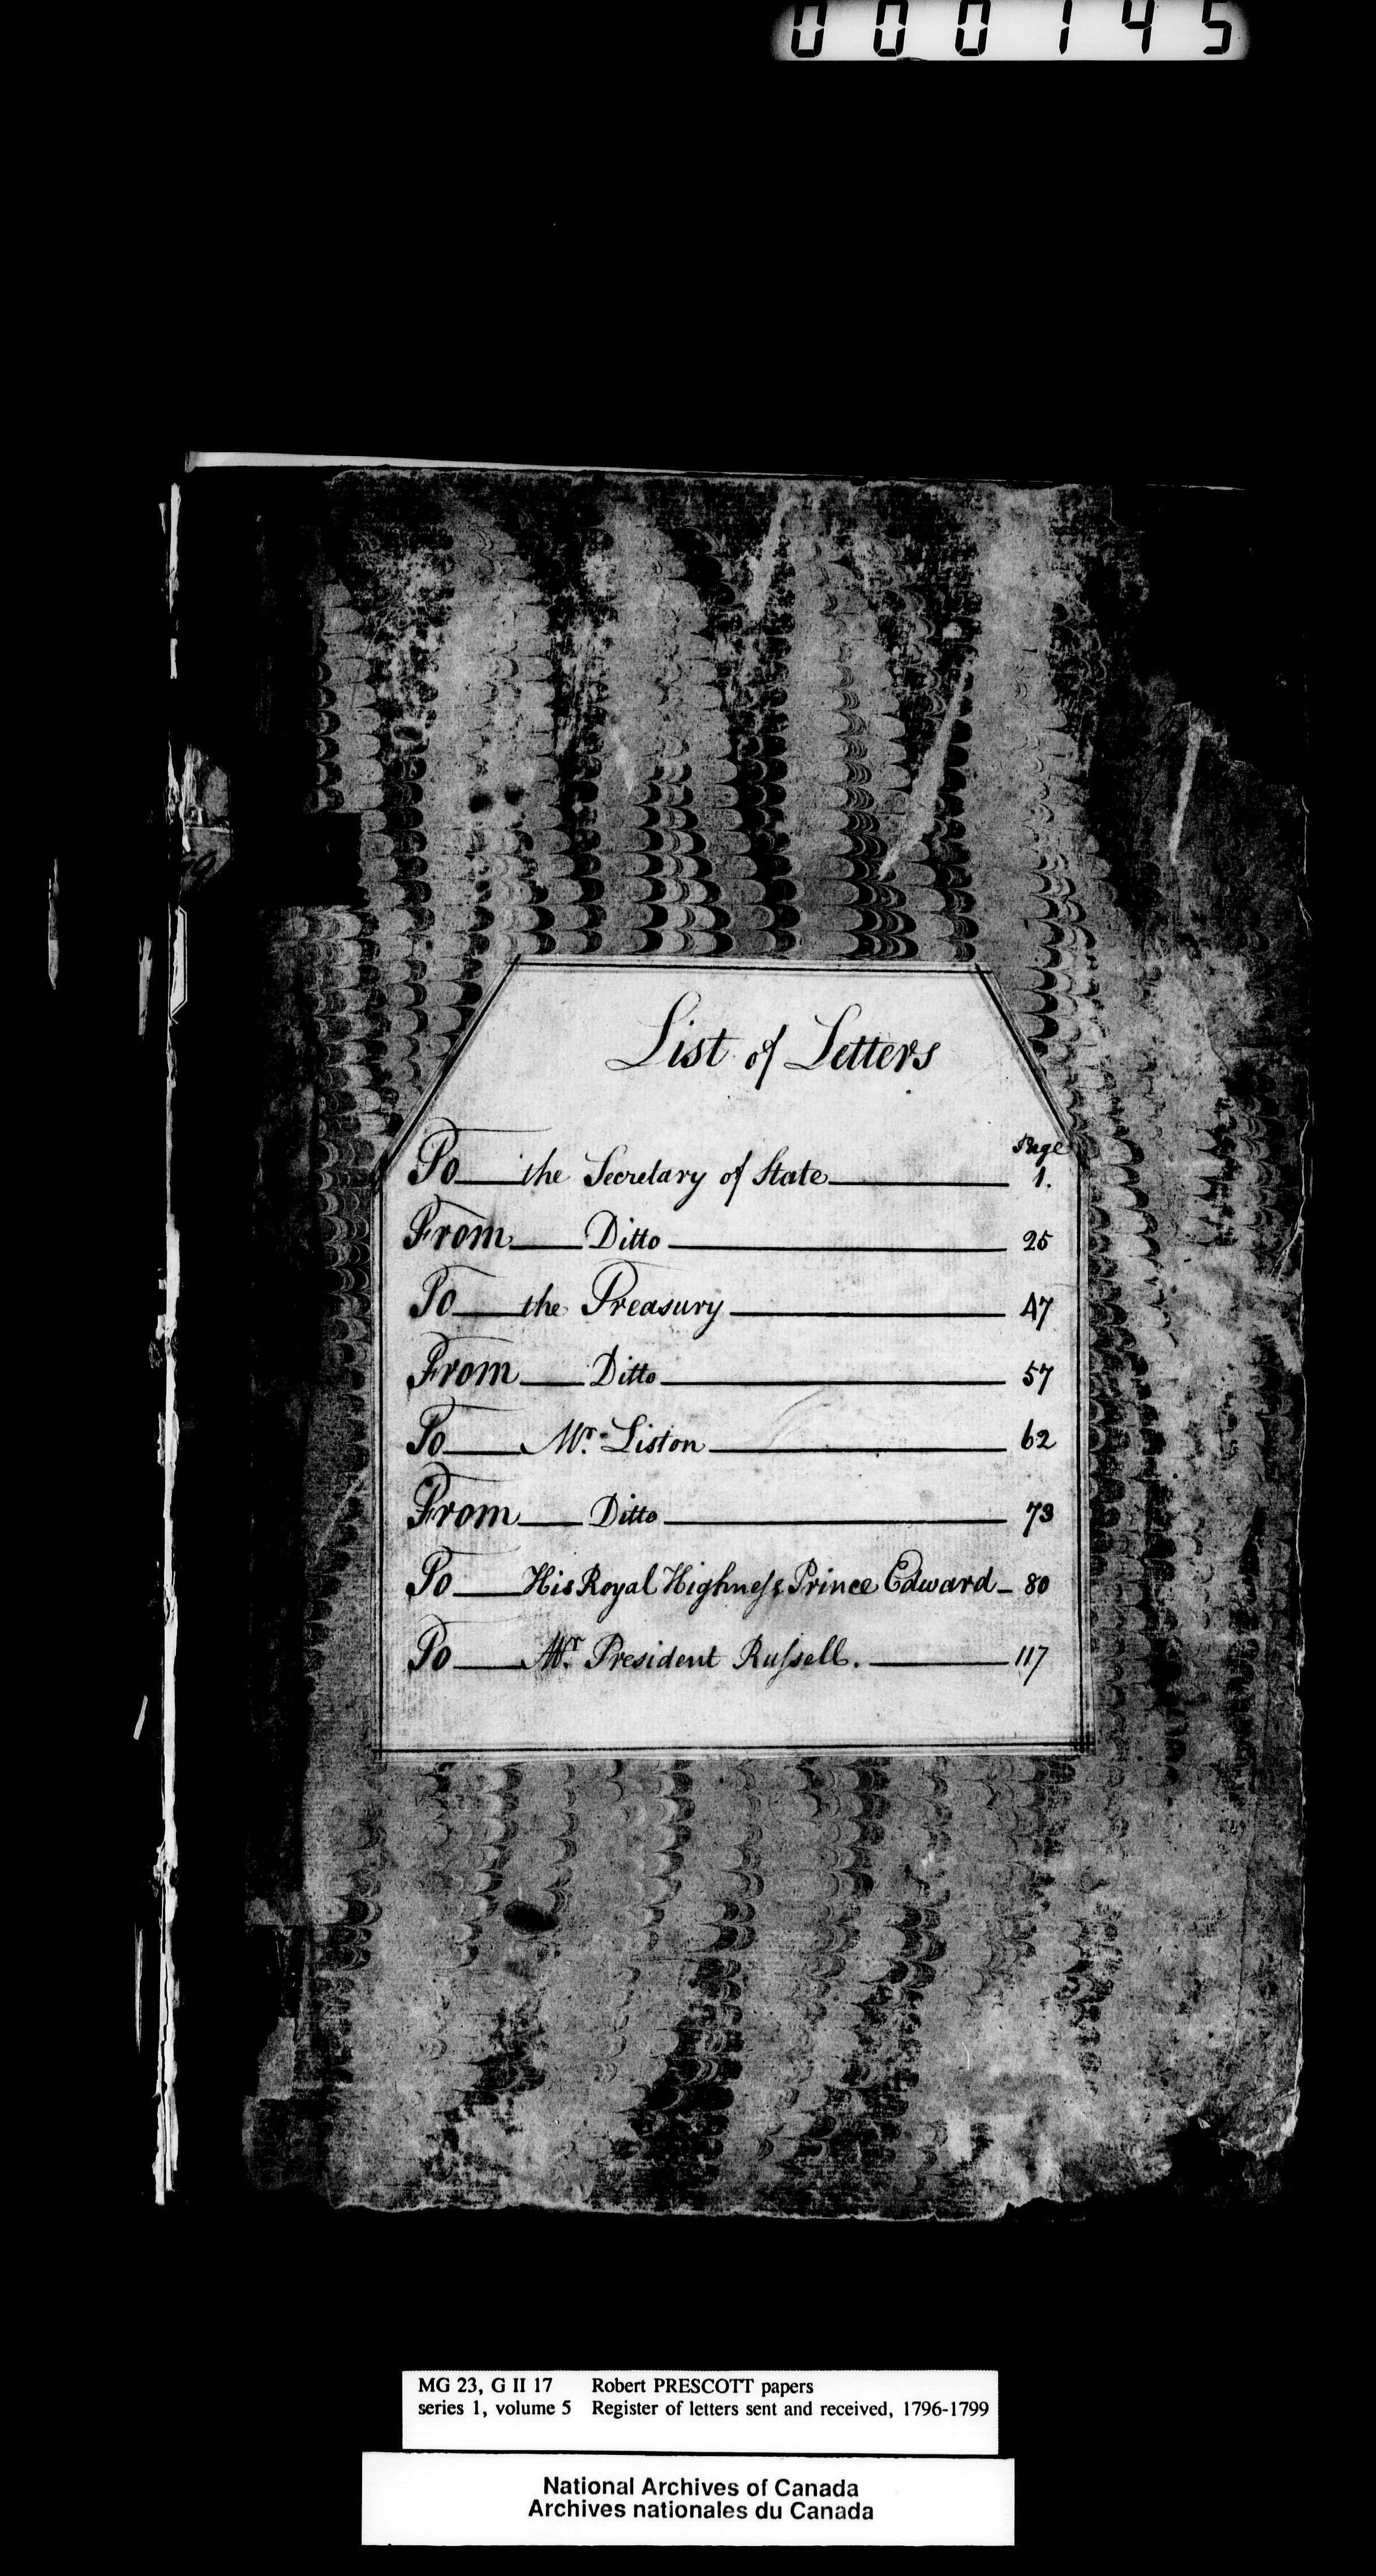 000145
List of Letters
Page
To the Secretary of State 1.
From Ditto 25
To the Treasury 47
From Ditto 57
To Mr. Liston 62
From Ditto 73
To His Royal Highneſs Prince Edward 80
To Mr. President Ruſsell. 117
MG 23, G II 17 Robert PRESCOTT papers
series 1, volume 5 Register of letters sent and received, 1796-1799
National Archives of Canada
Archives nationales du Canada